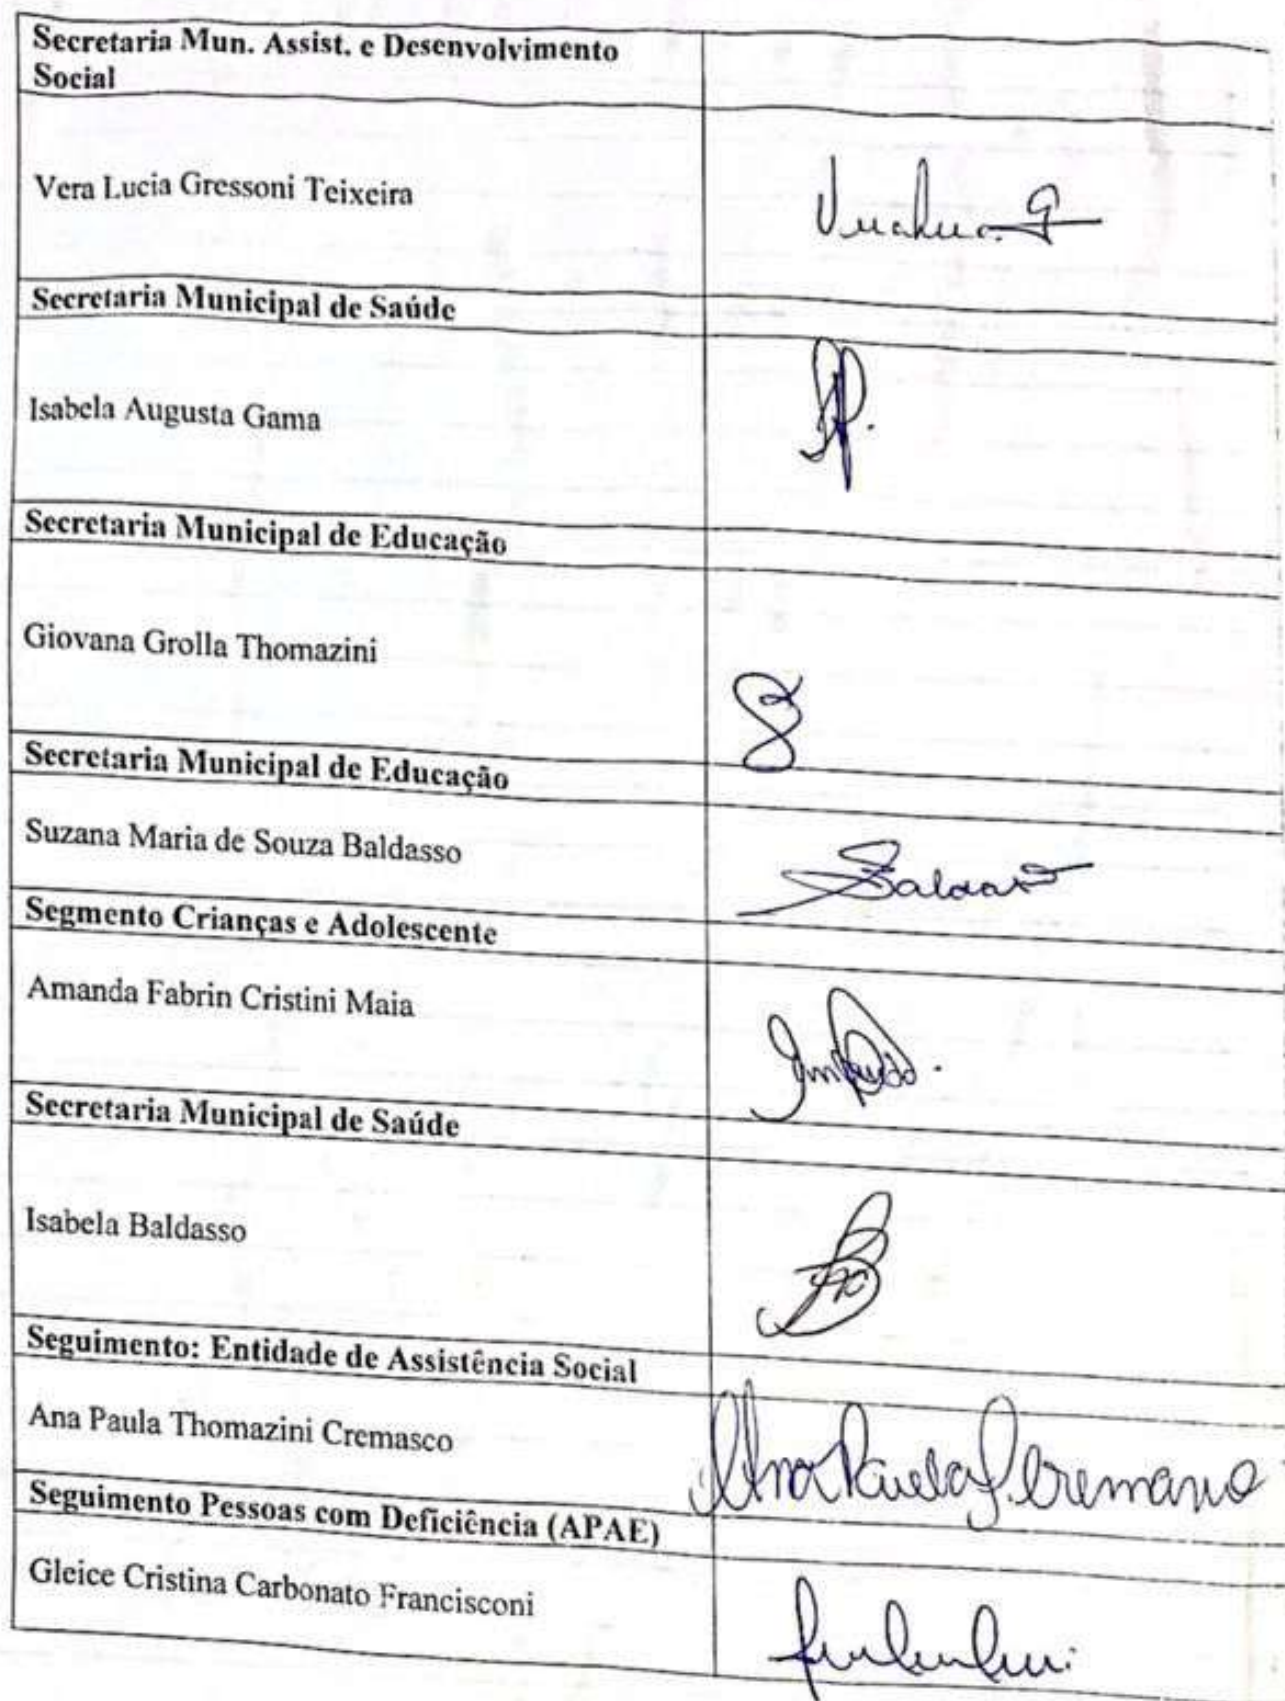 Secretaria Mun. Assist. e Desenvolvimento
Social
Vera Lucia Gressoni Teixeira
Secretaria Municipal de Saúde
Isabela Augusta Gama
Secretaria Municipal de Educação
Giovana Grolla Thomazini
Secretaria Municipal de Educação
Suzana Maria de Souza Baldasso
Segmento Crianças e Adolescente
Amanda Fabrin Cristini Maia
Secretaria Municipal de Saúde
Isabela Baldasso
Seguimento: Entidade de Assistência Social
Ana Paula Thomazini Cremasco
Ana Paula
Seguimento Pessoas com Deficiência (APAE)
Gleice Cristina Carbonato Francisconi